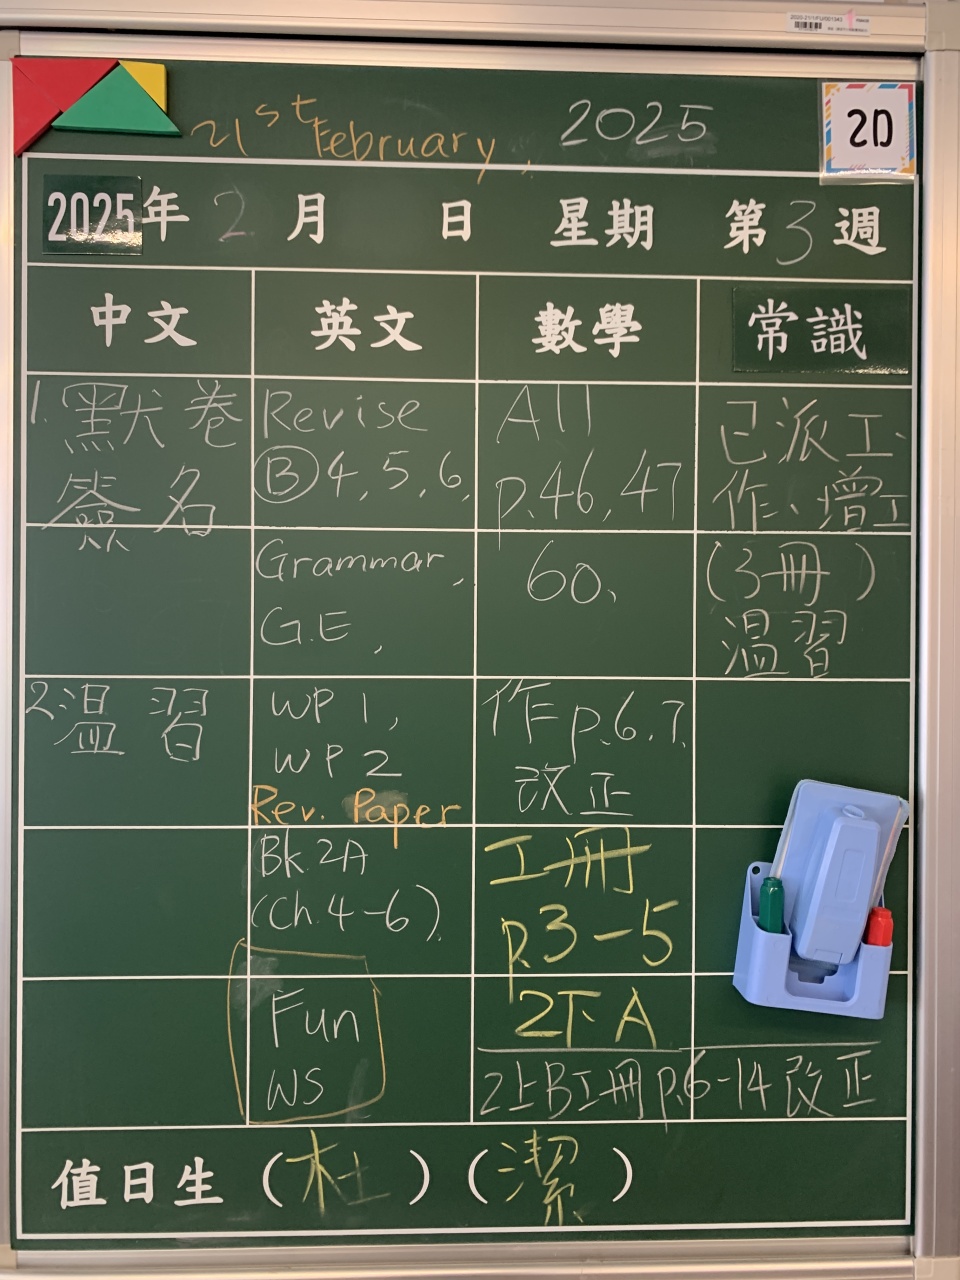 21st February, 2025
2D
2025年 2 月 日 星期 第 3 週
中文 英文 數學 常識
1. 默卷
簽名
2. 溫習
Revise
Ⓑ 4, 5, 6,
Grammar,
G.E,
WP 1,
WP 2
Rev. Paper
Bk. 2A
(Ch. 4-6),
Fun
WS
All
p.46, 47
60、
作 p.6, 7
改正
工冊
p.3-5
2下A
2上B工冊 p.6-14 改正
已派工
作、增工
(3冊)
溫習
值日生 (杜) (潔)